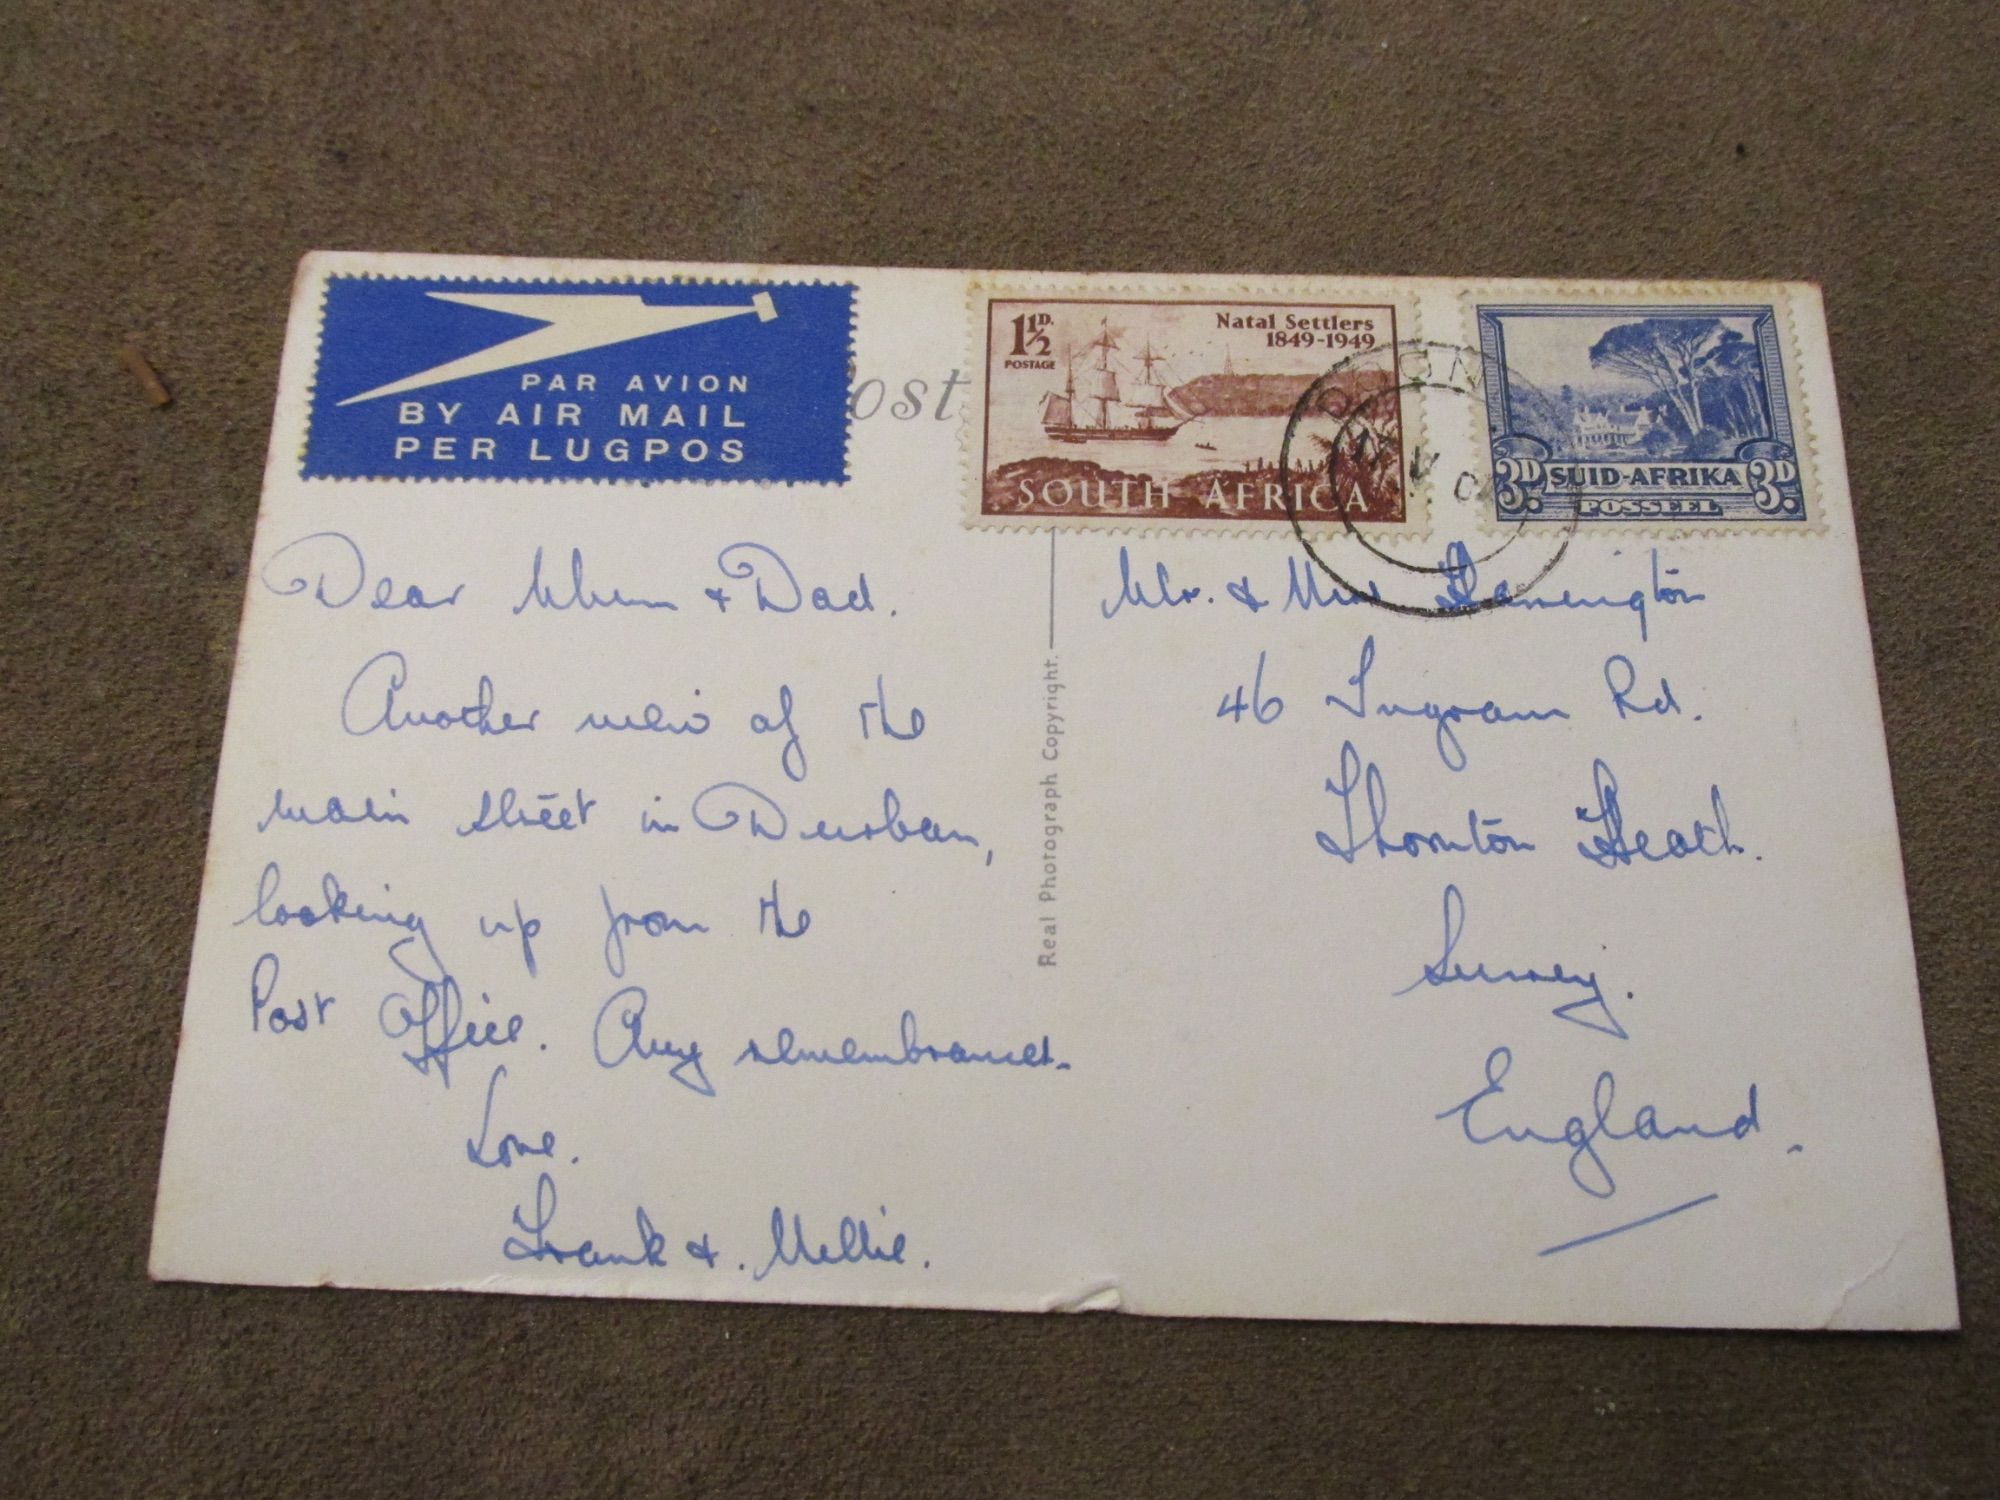 PAR AVION
BY AIR MAIL
PER LUGPOS
ost
1½D.
POSTAGE
Natal Settlers
1849-1949
SOUTH AFRICA
3D. SUID-AFRIKA 3D.
POSSEEL
Dear Mum & Dad.
Another view of the
main street in Durban,
looking up from the
Post Office. Any remembrances.
Love.
Frank & . Mellie.
Real Photograph Copyright.
Mr. & Mrs
46 Ingram Rd.
Thornton Heath.
Surrey.
England.